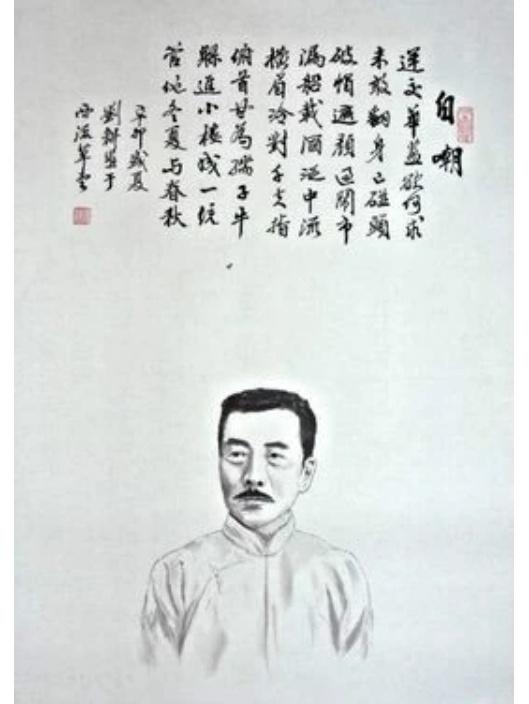 自嘲
運交華蓋欲何求
未敢翻身已碰頭
破帽遮顏過鬧市
漏船載酒泛中流
橫眉冷對千夫指
俯首甘為孺子牛
躲進小樓成一統
管他冬夏与春秋
辛卯歲夏
劉于
草堂